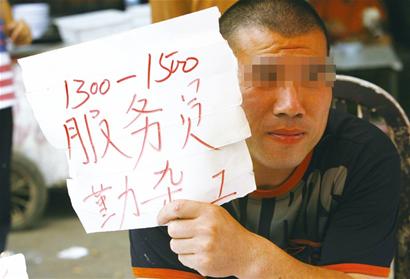 1300-1500
服务员
勤杂工